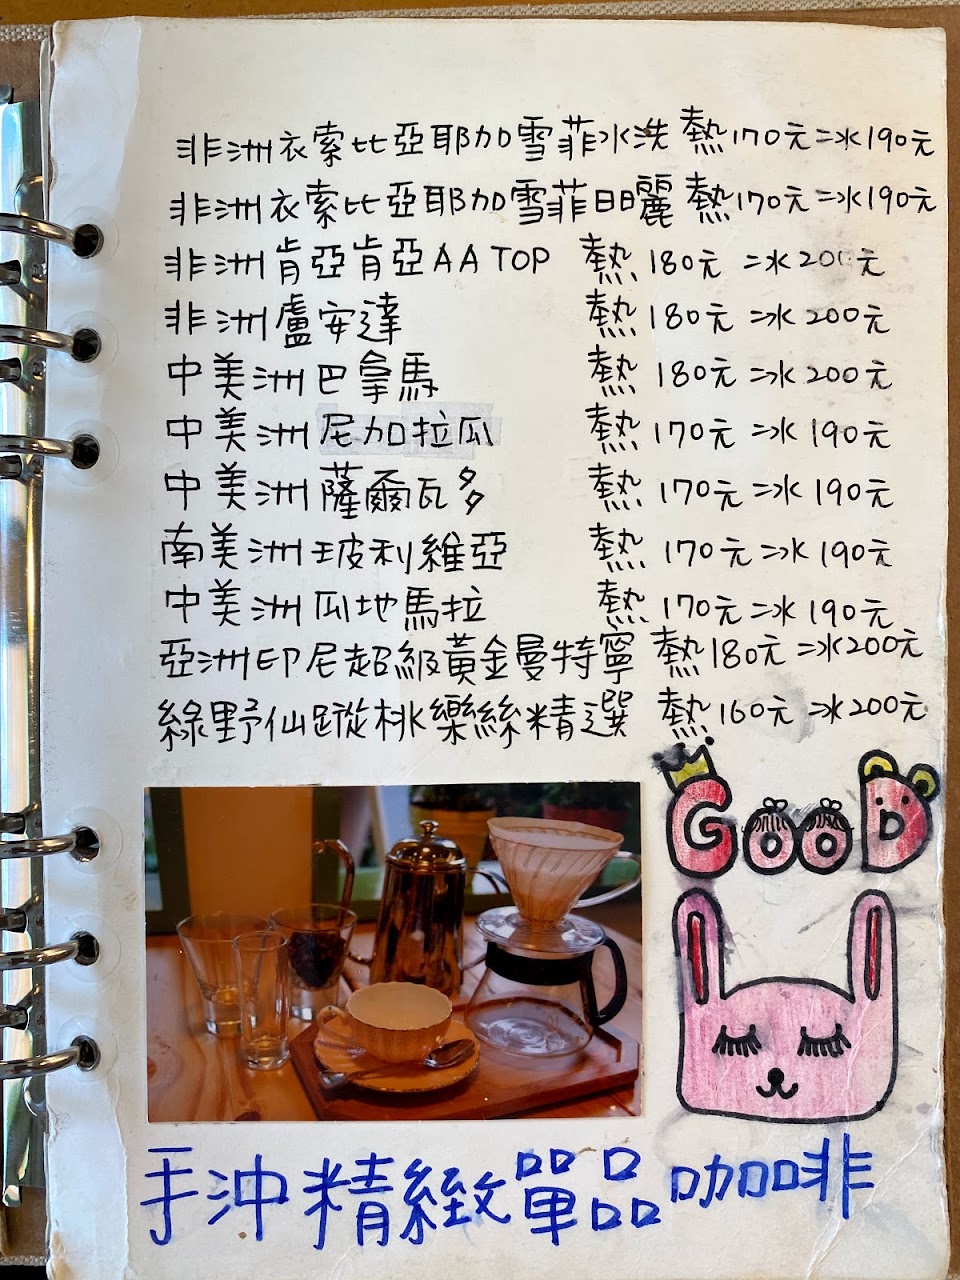 非洲衣索比亞耶加雪菲水洗 熱170元 冰190元
非洲衣索比亞耶加雪菲日曬 熱170元 冰190元
非洲肯亞肯亞AA TOP 熱180元 冰200元
非洲盧安達 熱180元 冰200元
中美洲巴拿馬 熱180元 冰200元
中美洲尼加拉瓜 熱170元 冰190元
中美洲薩爾瓦多 熱170元 冰190元
南美洲玻利維亞 熱170元 冰190元
中美洲瓜地馬拉 熱170元 冰190元
亞洲印尼超級黃金曼特寧 熱180元 冰200元
綠野仙蹤桃樂絲精選 熱160元 冰200元
GOOD
手沖精緻單品咖啡